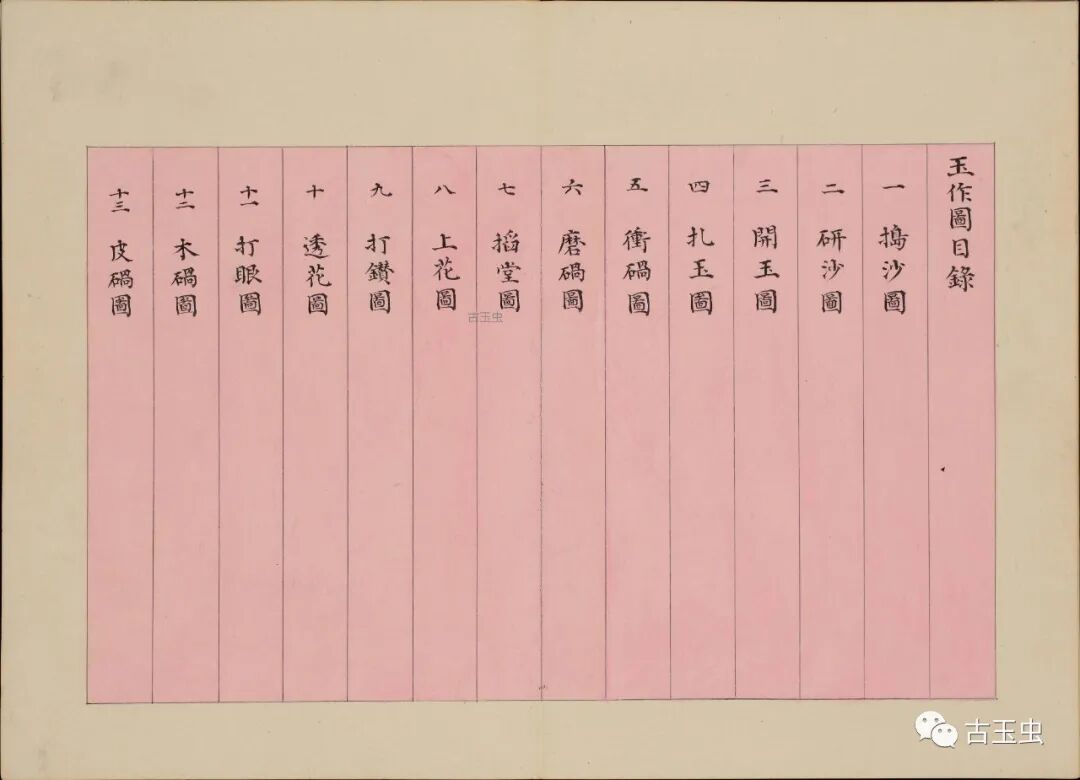 玉作圖目錄
一 搗沙圖
二 研沙圖
三 開玉圖
四 扎玉圖
五 衝碢圖
六 磨碢圖
七 搯堂圖
八 上花圖
九 打鑚圖
十 透花圖
十一 打眼圖
十二 木碢圖
十三 皮碢圖
古玉虫
古玉虫